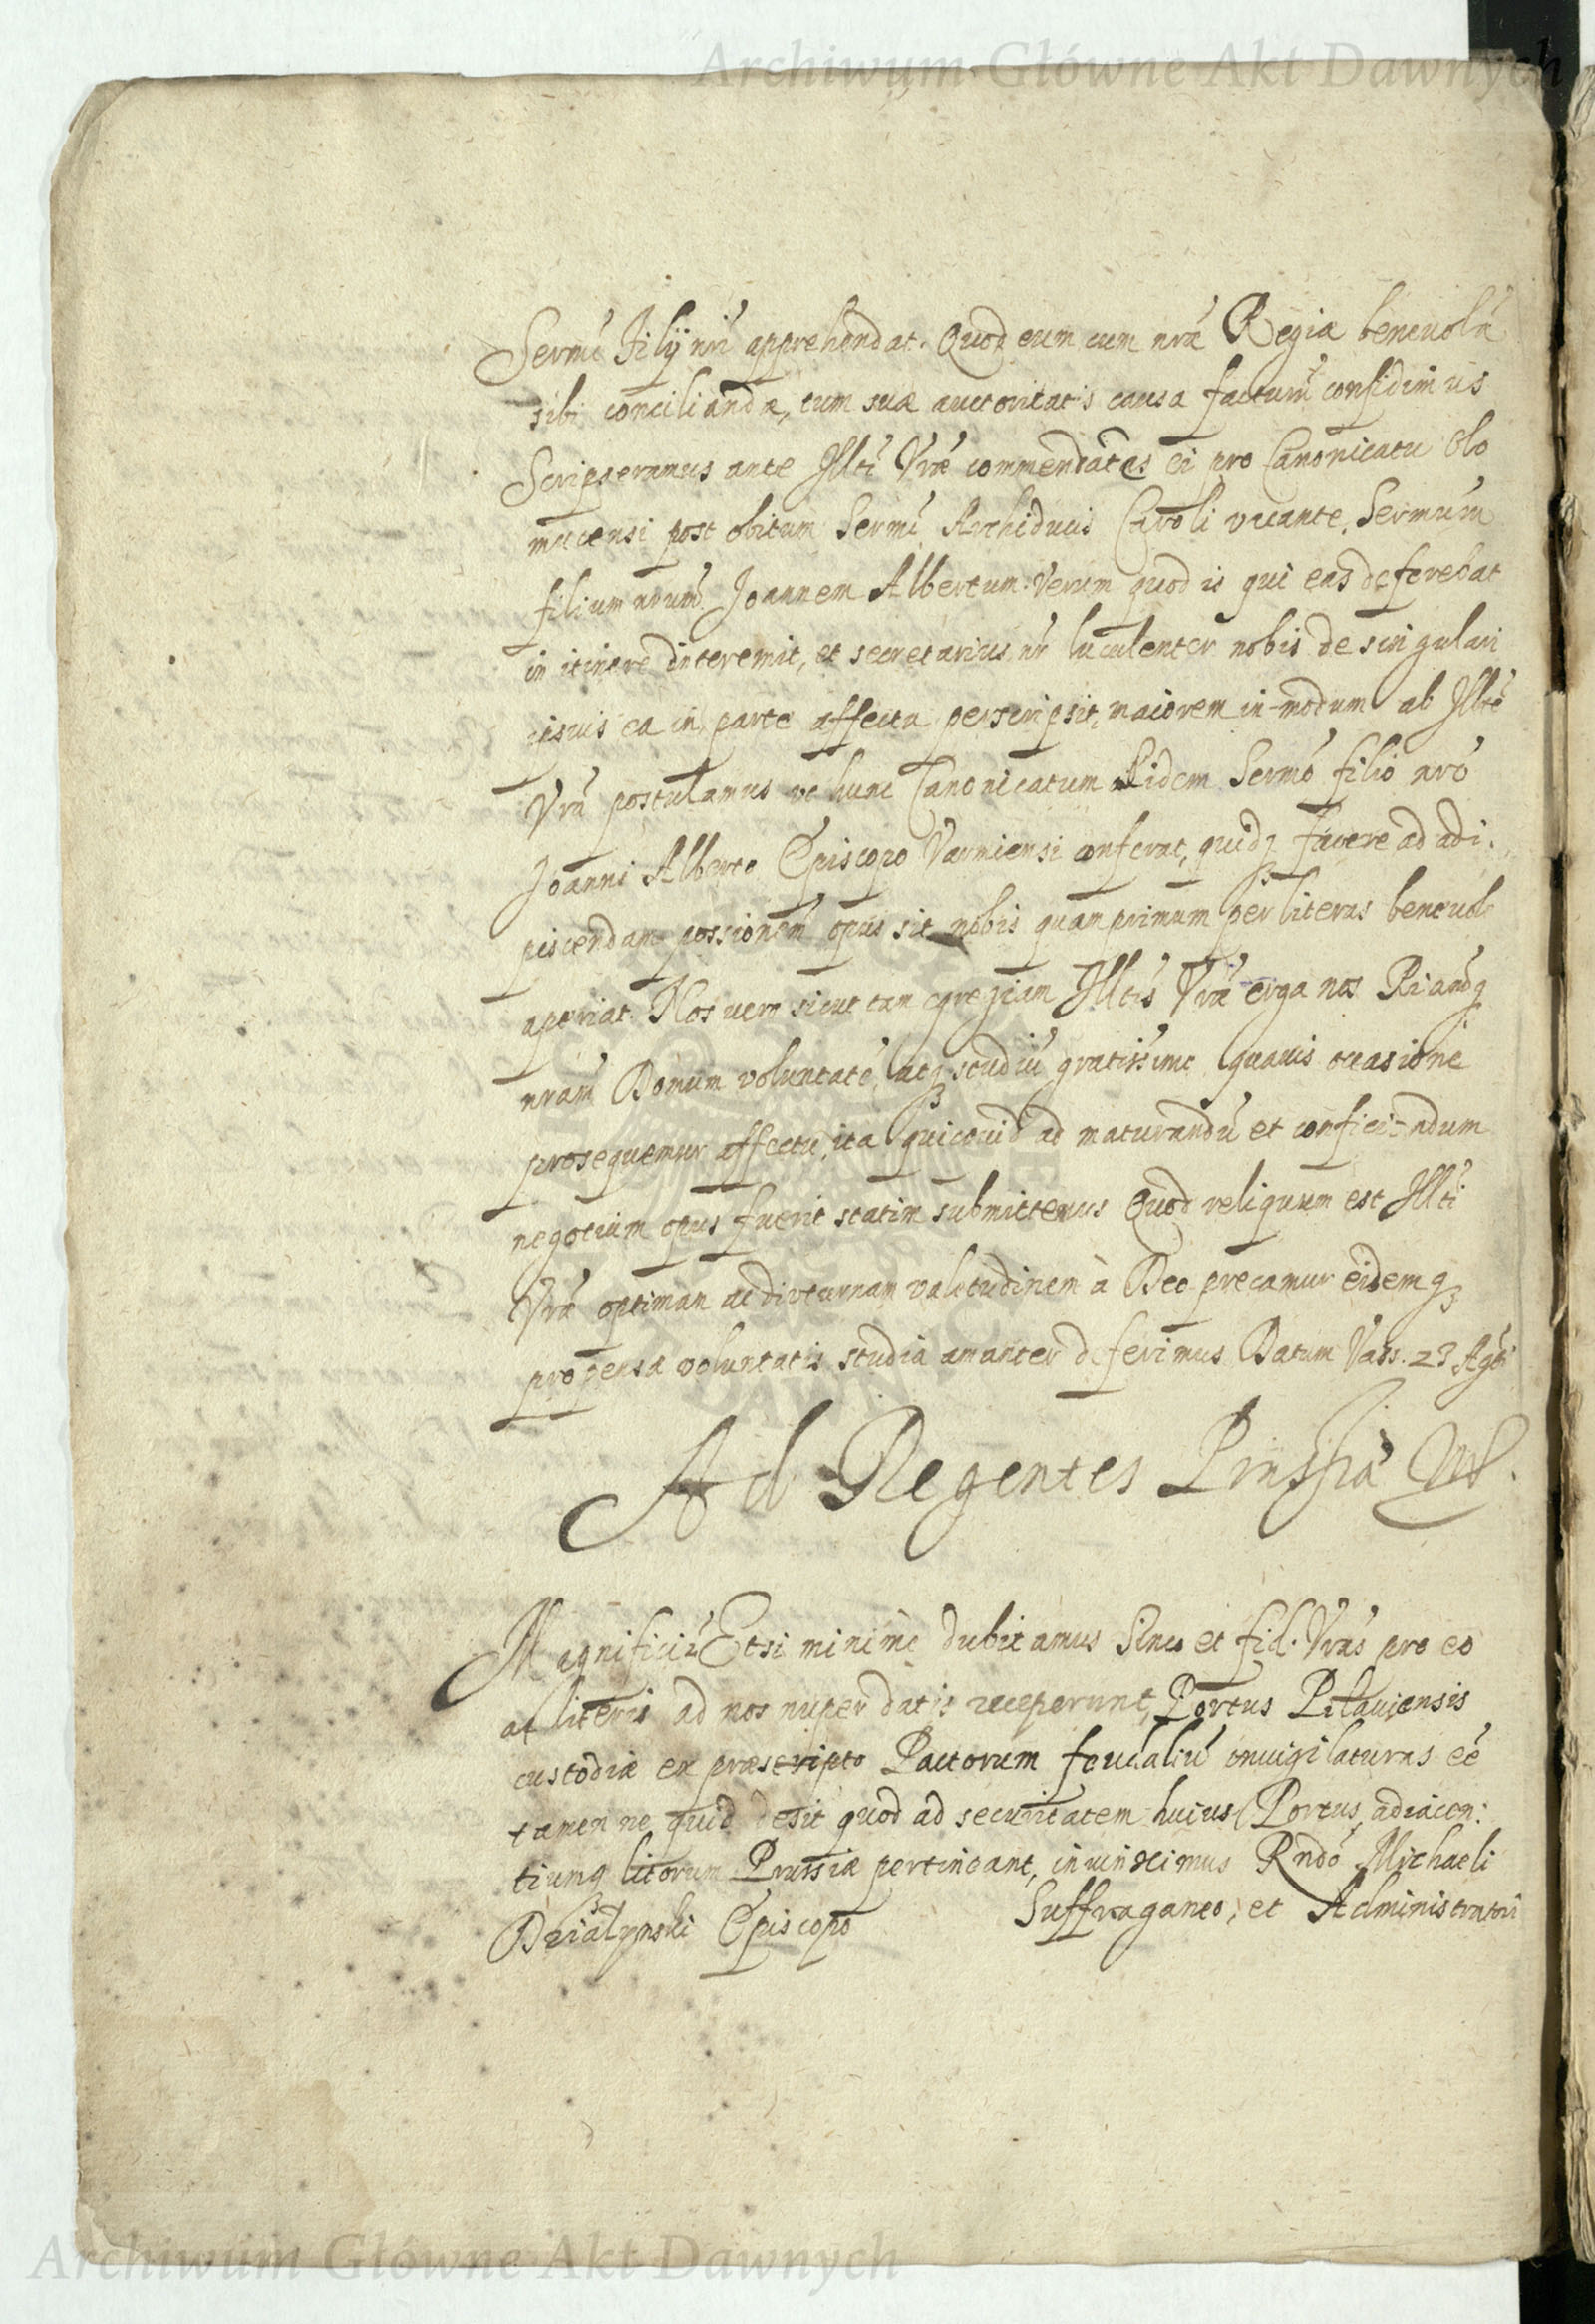 Archiwum Główne Akt Dawnych
Sermi Filij nri apprehendat. Quod eum cum nrae Regia beneuolae
sibi conciliandae, tum suae auctoritatis causa facturum confidimus
Scripseramus ante Illti Vrae commendates ei pro Canonicatu Olo
mucensi post obitum Sermi Archiducis Caroli vacante, Sermum
filium nrum Joannem Albertum. Verum quod is qui eas deferebat
in itinere interemit, et secretarius nr luculenter nobis de singulari
isuis ea in parte affectu perscripsit, maiorem in modum ab Illte
Vra postulamus vt hunc Canonicatum Eidem Sermo filio nro
Joanni Alberto Episcopo Varmiensi conferat, quidq facere ad adi.
piscendam possionem opus sit nobis quam primum per literas beneuole
aperiat. Nos vero sicut tam egregiam Illtis Vrae erga nos Riandq
nram Domum voluntate, atq studiu gratissimo quauis occasione
prosequemur affectu, ita quicquid ad maturandu et conficiendum
negotium opus fuerit statim submittemus Quod reliquum est Illti
Vrae optimam ac diuturnam valetudinem à Deo precamur eidemq
propensae voluntatis studia amanter deferimus Datum Vars. 23 Agti
Ad Regentes Prussia
Magnificis Etsi minime dubitamus Sinces et fid. Vras pro eo
ac literis ad nos nuper datis receperunt, Portus Pilauiensis
custodiae ex praescripto Pactorum feudaliu inuigilaturas ee
tamen ne quid desit quod ad securitatem huius Portus, adiacen:
tiumq litorum Prussiae pertineant, iniunximus Rndo Michaeli
Działynski Episcopo Suffraganeo, et Administratori
Archiwum Główne Akt Dawnych